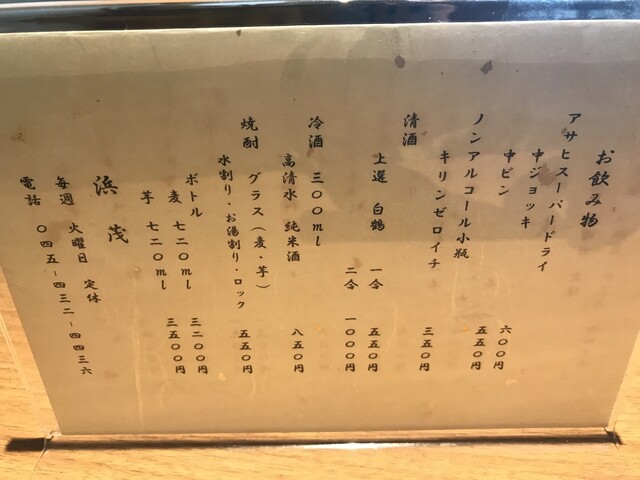 お飲み物
アサヒスーパードライ
中ジョッキ 五五〇円
中ビン 六〇〇円
ノンアルコール小瓶
キリンゼロイチ 三五〇円
清酒
上選 白鶴 一合 五五〇円
二合 一〇〇〇円
冷酒 三〇〇ml
高清水 純米酒 八五〇円
焼酎 グラス（麦・芋）
水割り・お湯割り・ロック 五五〇円
ボトル
麦 七二〇ml 三二〇〇円
芋 七二〇ml 三五〇〇円
浜茂
毎週 火曜日 定休
電話 〇四五－四三二－四四三六